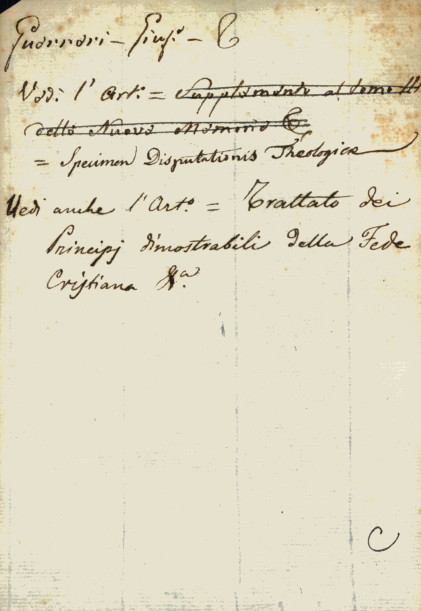 Guerreri - Gius.e - C
Vedi l' Art.o = Supplemento al tomo III
delle Nuove Memorie &
= Specimen Disputationis Theologicæ
Vedi anche l'Art.o = Trattato dei
Principj dimostrabili della Fede
Cristiana &a.
C